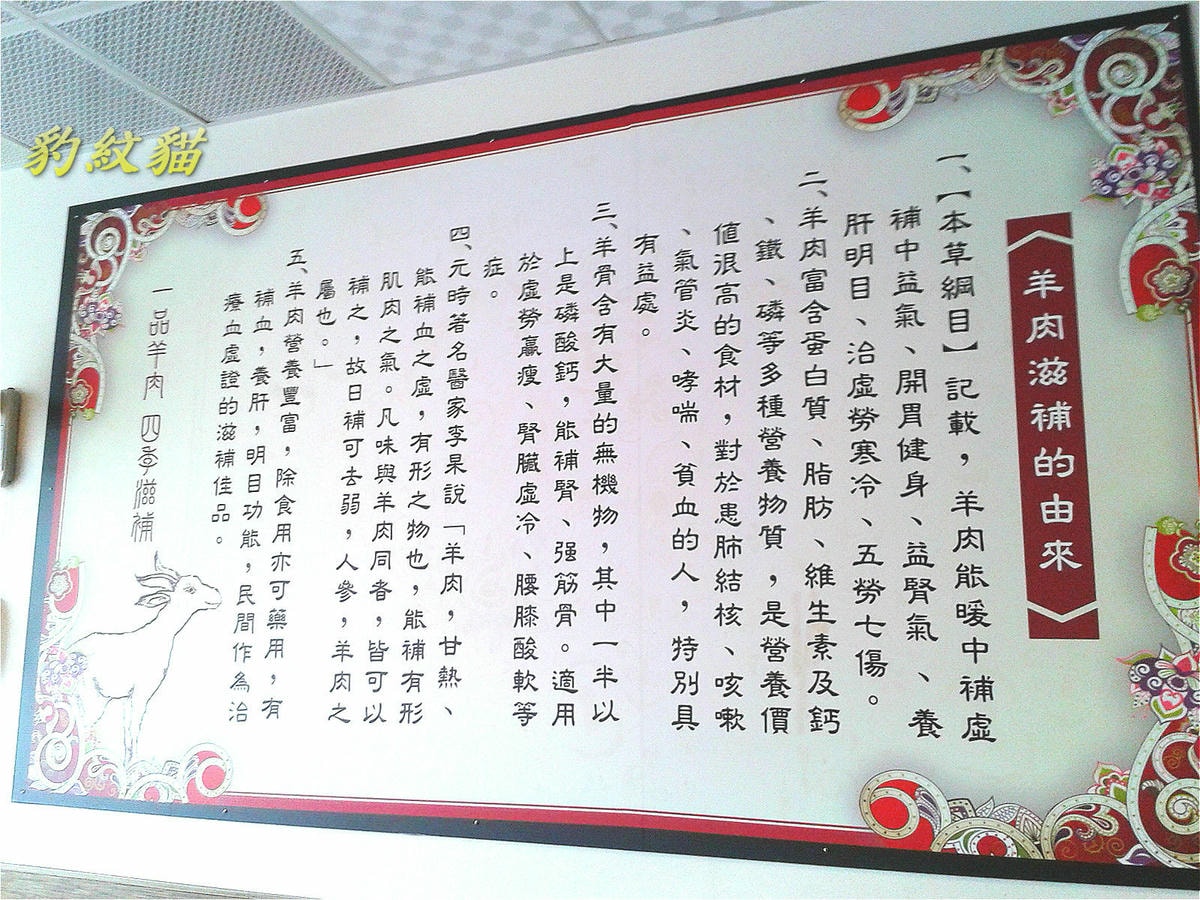 豹紋貓
羊肉滋補的由來
一、【本草綱目】記載，羊肉能暖中補虛
補中益氣、開胃健身、益腎氣、養
肝明目、治虛勞寒冷、五勞七傷。
二、羊肉富含蛋白質、脂肪、維生素及鈣
、鐵、磷等多種營養物質，是營養價
值很高的食材，對於患肺結核、咳嗽
、氣管炎、哮喘、貧血的人，特別具
有益處。
三、羊骨含有大量的無機物，其中一半以
上是磷酸鈣，能補腎、強筋骨。適用
於虛勞羸瘦、腎臟虛冷、腰膝酸軟等
症。
四、元時著名醫家李杲說「羊肉，甘熱、
能補血之虛，有形之物也，能補有形
肌肉之氣。凡味與羊肉同者，皆可以
補之，故日補可去弱，人參，羊肉之
屬也。」
五、羊肉營養豐富，除食用亦可藥用，有
補血，養肝，明目功能，民間作為治
療血虛證的滋補佳品。
一品羊肉 四季滋補